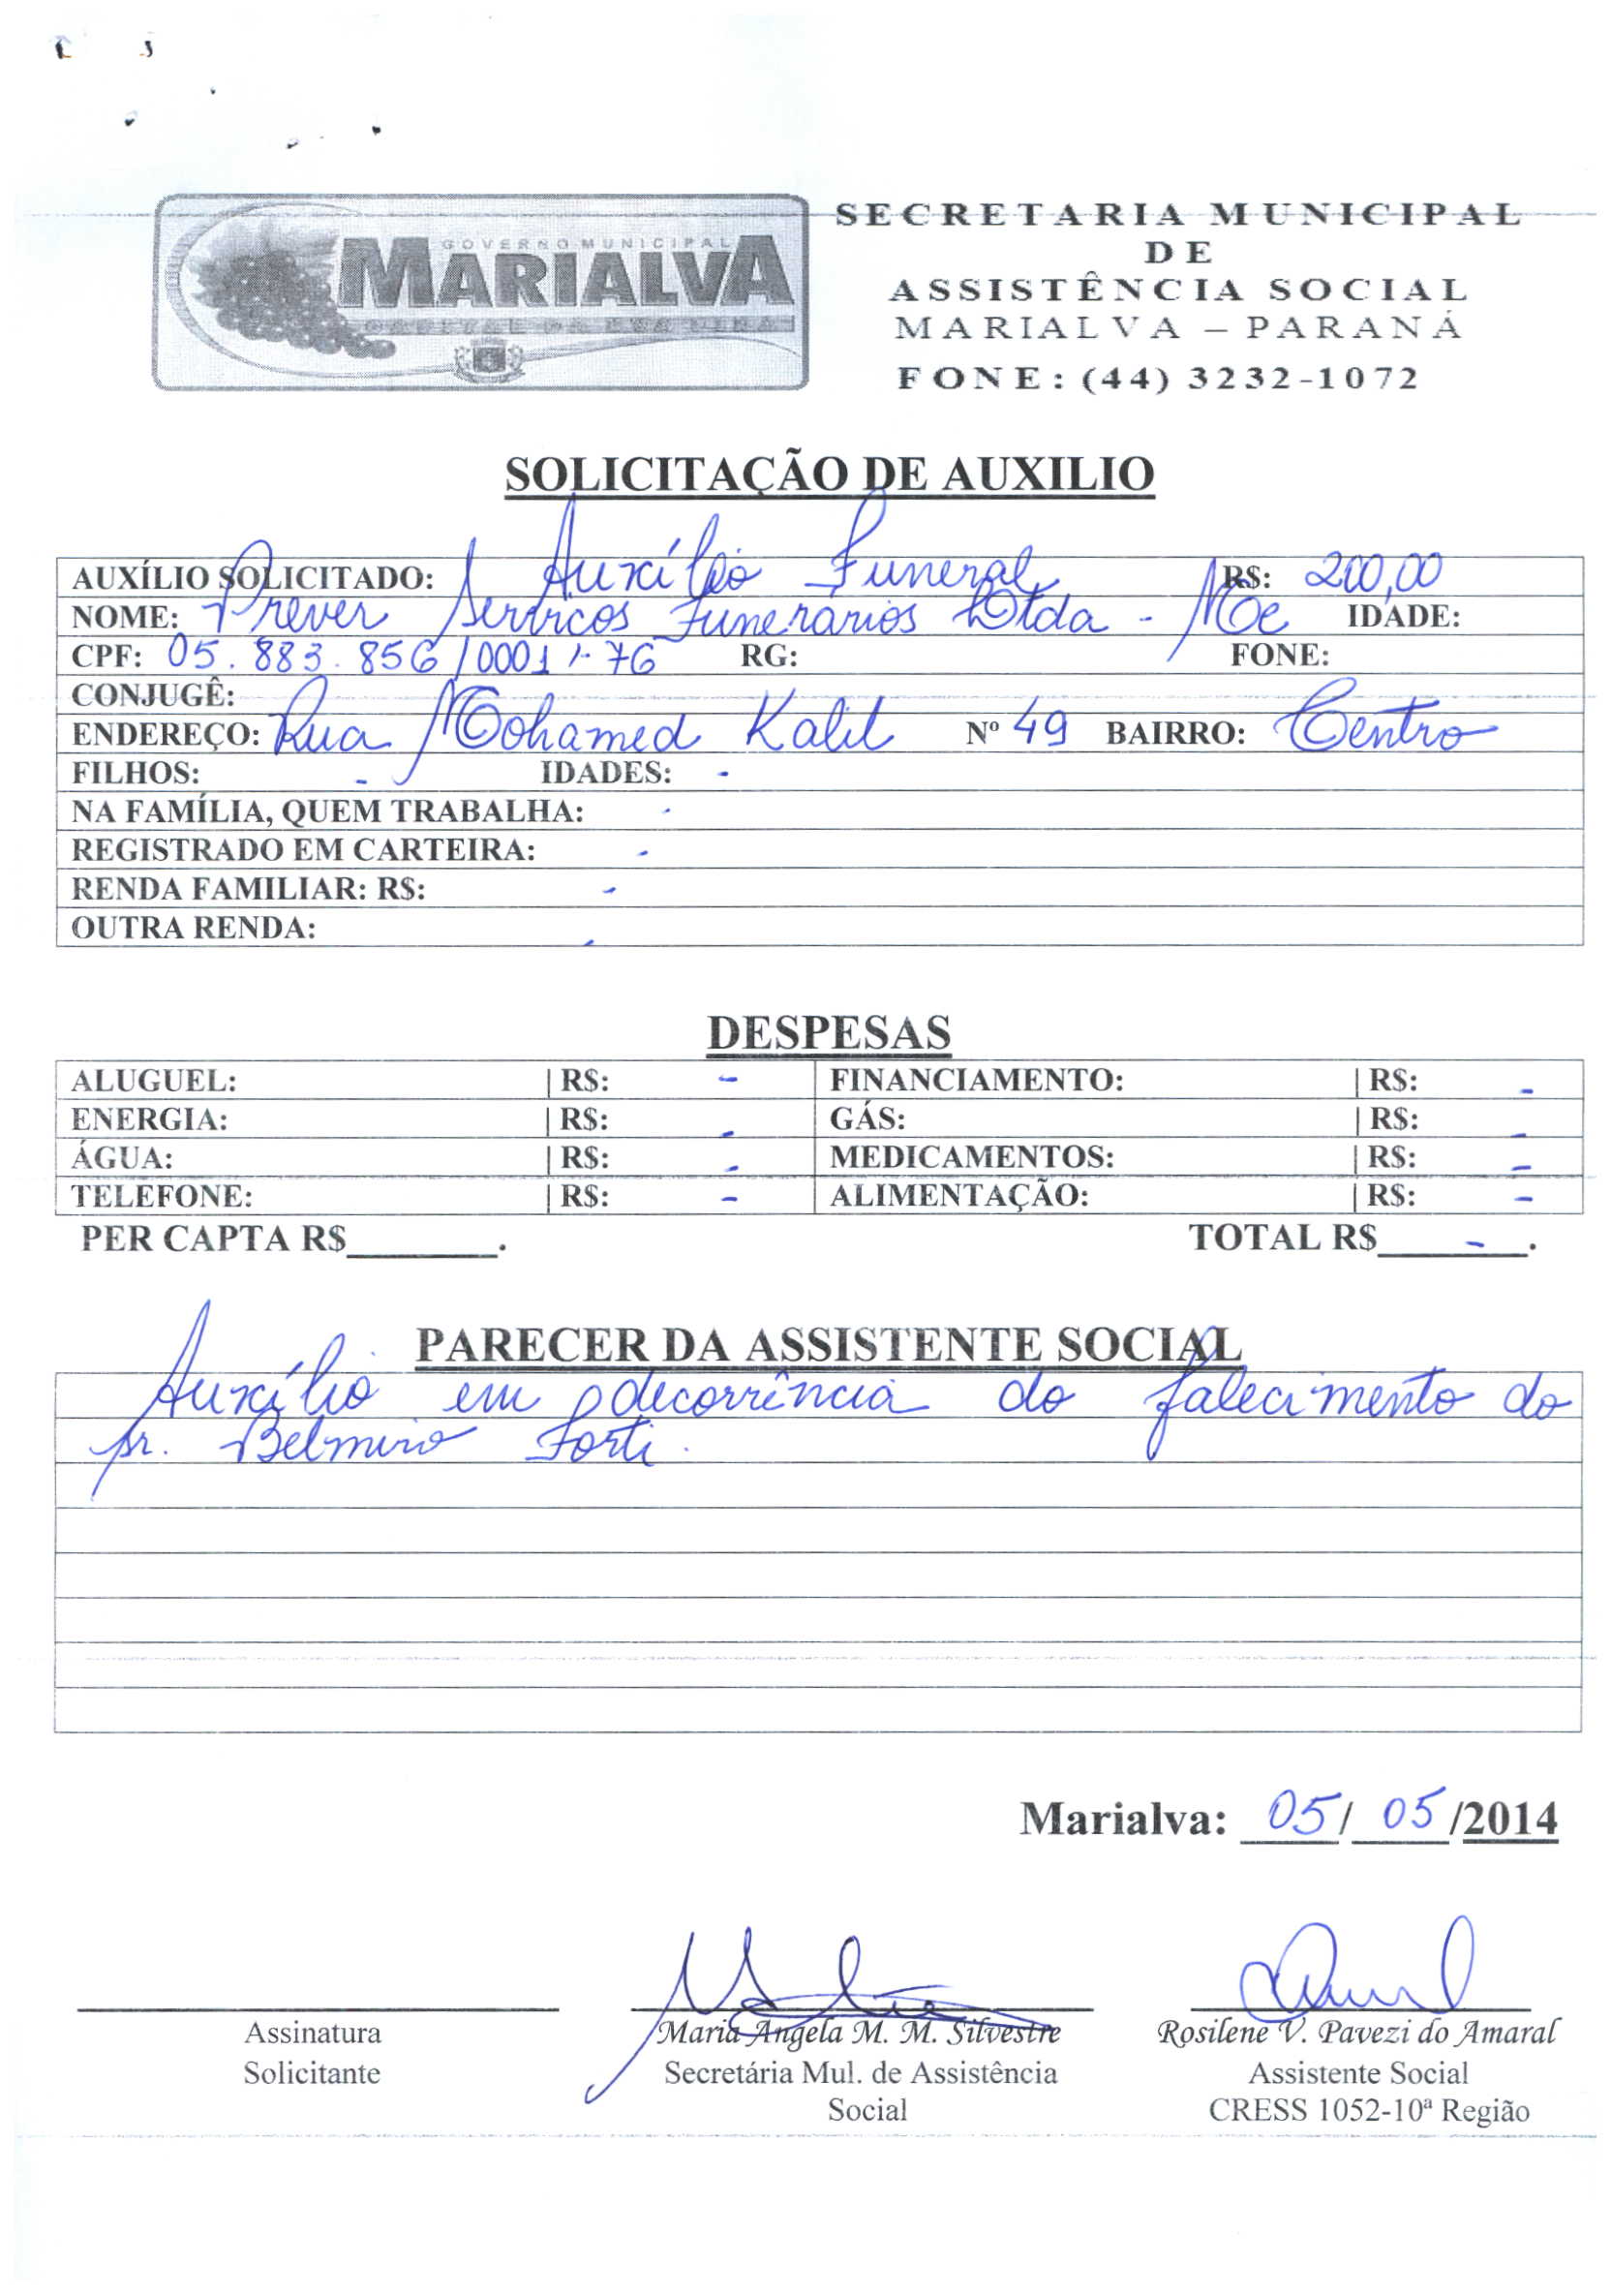 GOVERNO MUNICIPAL
MARIALVA
CAPITAL DA UVA FINA
SECRETARIA MUNICIPAL
DE
ASSISTÊNCIA SOCIAL
MARIALVA – PARANÁ
FONE: (44) 3232-1072
SOLICITAÇÃO DE AUXILIO
AUXÍLIO SOLICITADO: Auxílio Funeral R$: 200,00
NOME: Prever Serviços Funerários Ltda - Me IDADE:
CPF: 05.883.856/0001-76 RG: FONE:
CONJUGÊ:
ENDEREÇO: Rua Mohamed Kalil Nº 49 BAIRRO: Centro
FILHOS: - IDADES: -
NA FAMÍLIA, QUEM TRABALHA: -
REGISTRADO EM CARTEIRA: -
RENDA FAMILIAR: R$: -
OUTRA RENDA: -
DESPESAS
ALUGUEL: | R$: - FINANCIAMENTO: | R$: -
ENERGIA: | R$: - GÁS: | R$: -
ÁGUA: | R$: - MEDICAMENTOS: | R$: -
TELEFONE: | R$: - ALIMENTAÇÃO: | R$: -
PER CAPTA R$________. TOTAL R$____-____.
PARECER DA ASSISTENTE SOCIAL
Auxílio em decorrência do falecimento do
sr. Belmiro Forti.
Marialva: 05/ 05 /2014
Assinatura
Solicitante
Maria Angela M. M. Silvestre
Secretária Mul. de Assistência
Social
Rosilene V. Pavezi do Amaral
Assistente Social
CRESS 1052-10ª Região